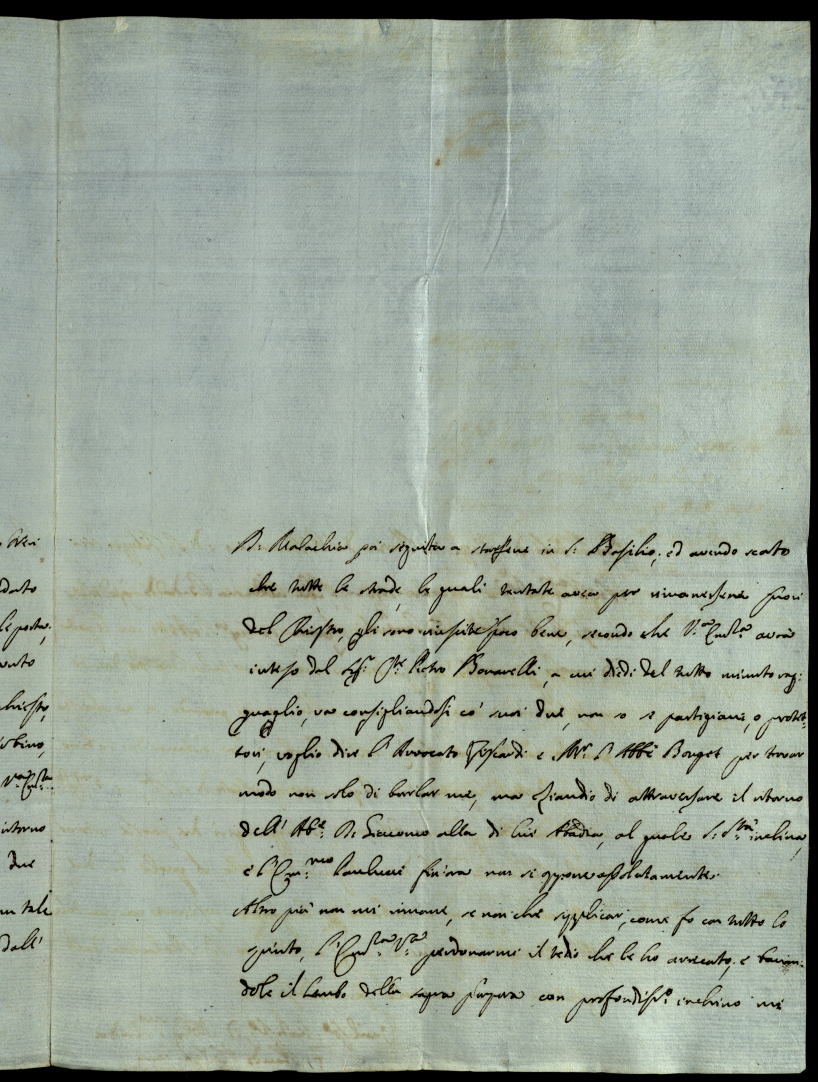 D. Malachia poi seguita a starsene in S. Basilio; ed avendo
che tutte le strade, le quali tentate avea per rimanersene fuori
del Chiostro, gli sono riuscite poco bene, secondo che V.a Em.za avrà
inteso dal Sig. C.te Pietro Bonarelli, a cui diedi del tutto minuto rag:
guaglio, va consigliandosi co' suoi due, non so se partigiani, o protet:
tori, voglio dire l'Avvocato e Mr. l'Abbé Bouget per trovar
modo non solo di burlar me, ma eziandio di attraversare il ritorno
dell' Ab.e D. Giacomo alla di lui Abadia, al quale S. S.tà inclina,
e l'Em.mo Paulucci finora non si oppone assolutamente.
Altro più non mi rimane, se non che supplicar, come fo con tutto lo
spirito, l'Em.za V.a perdonarmi il tedio che le ho arrecato; e bacian-
dole il lembo della sagra porpora con profondiss.o inchino mi
dato
le porta,
chiostro,
V.a Em.za
intorno
due
un tale
dall'